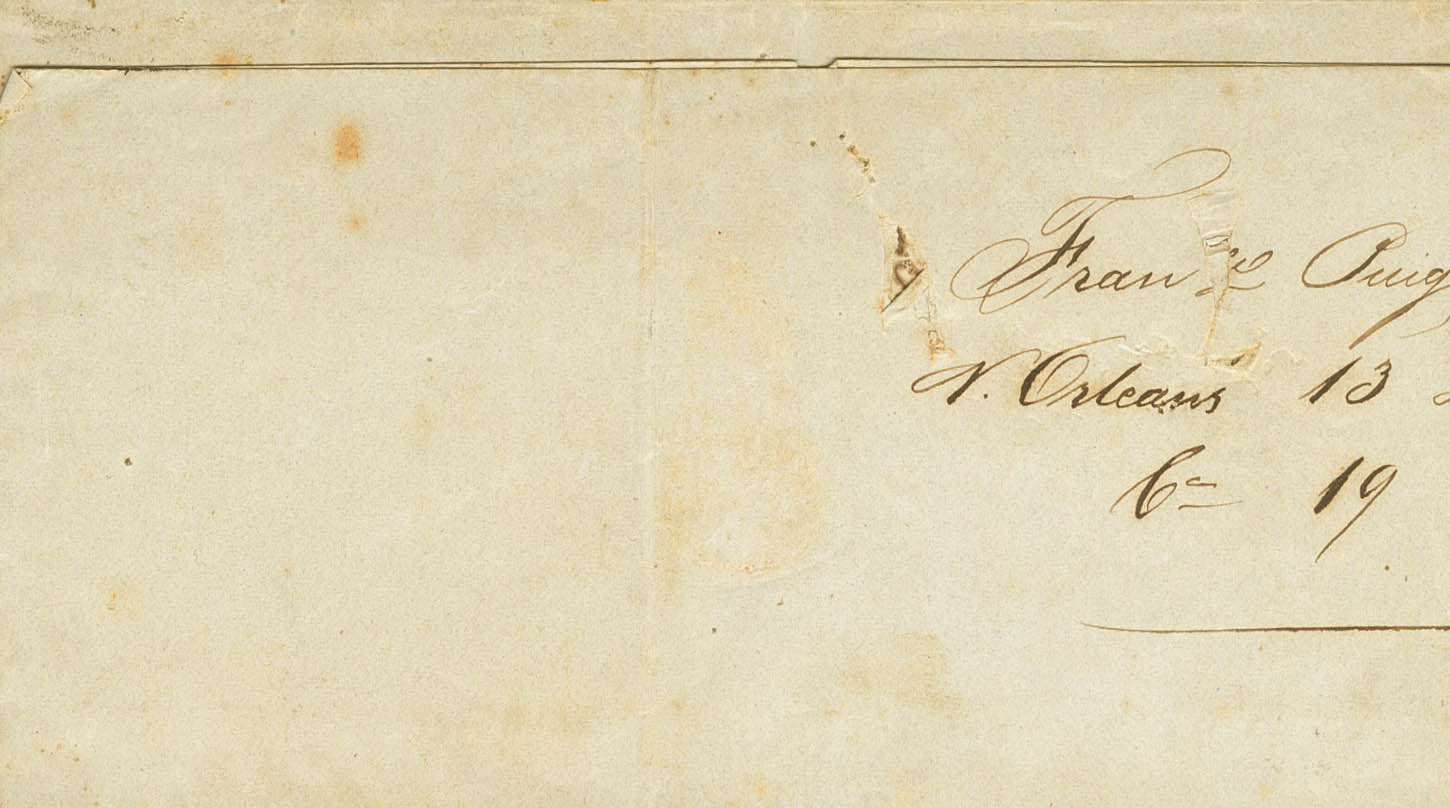 Fran co Puig
N. Orleans 13
Ca 19